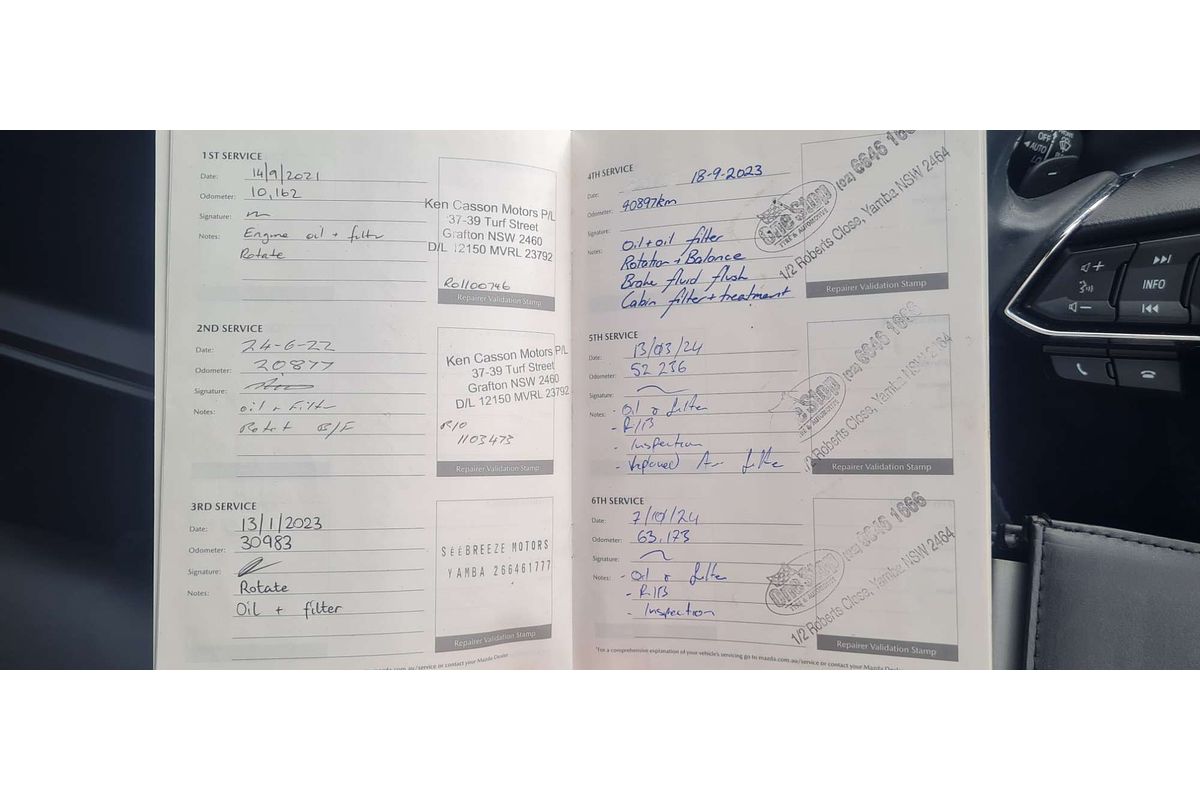 1ST SERVICE
Date: 14/9/2021
Odometer: 10,162
Signature:
Notes: Engine oil + filter
Rotate
Ken Casson Motors P/L
37-39 Turf Street
Grafton NSW 2460
D/L 12150 MVRL 23792
RO1100746
Repairer Validation Stamp
2ND SERVICE
Date: 24-6-22
Odometer: 20877
Signature:
Notes: oil + Filter
Rotat B/F
Ken Casson Motors P/L
37-39 Turf Street
Grafton NSW 2460
D/L 12150 MVRL 23792
R/O
1103473
Repairer Validation Stamp
3RD SERVICE
Date: 13/1/2023
Odometer: 30983
Signature:
Notes: Rotate
Oil + filter
SééBREEZE MOTORS
YAMBA 266461777
Repairer Validation Stamp
service or contact your Mazda Dealer
4TH SERVICE
Date: 18-9-2023
Odometer: 40897km
Signature:
Notes: Oil + oil filter
Rotation + Balance
Brake fluid flush
Cabin filter + treatment
One Stop
TYRE & AUTOMOTIVE
(02) 6646 166
1/2 Roberts Close, Yamba NSW 2464
Repairer Validation Stamp
5TH SERVICE
Date: 13/03/24
Odometer: 52 236
Signature:
Notes: - Oil & filter
- R/B
- Inspection
- Air filter
Stop
TYRE & AUTOMOTIVE
(02) 6646 1666
1/2 Roberts Close, Yamba NSW 2464
Repairer Validation Stamp
6TH SERVICE
Date: 7/10/24
Odometer: 63,173
Signature:
Notes: - Oil & filter
- R/B
- Inspection
One Stop
TYRE & AUTOMOTIVE
(02) 6646 1666
1/2 Roberts Close, Yamba NSW 2464
Repairer Validation Stamp
*For a comprehensive explanation of your vehicle's servicing go to mazda.com.au/service or contact your Mazda Dealer
OFF
AUTO
INFO